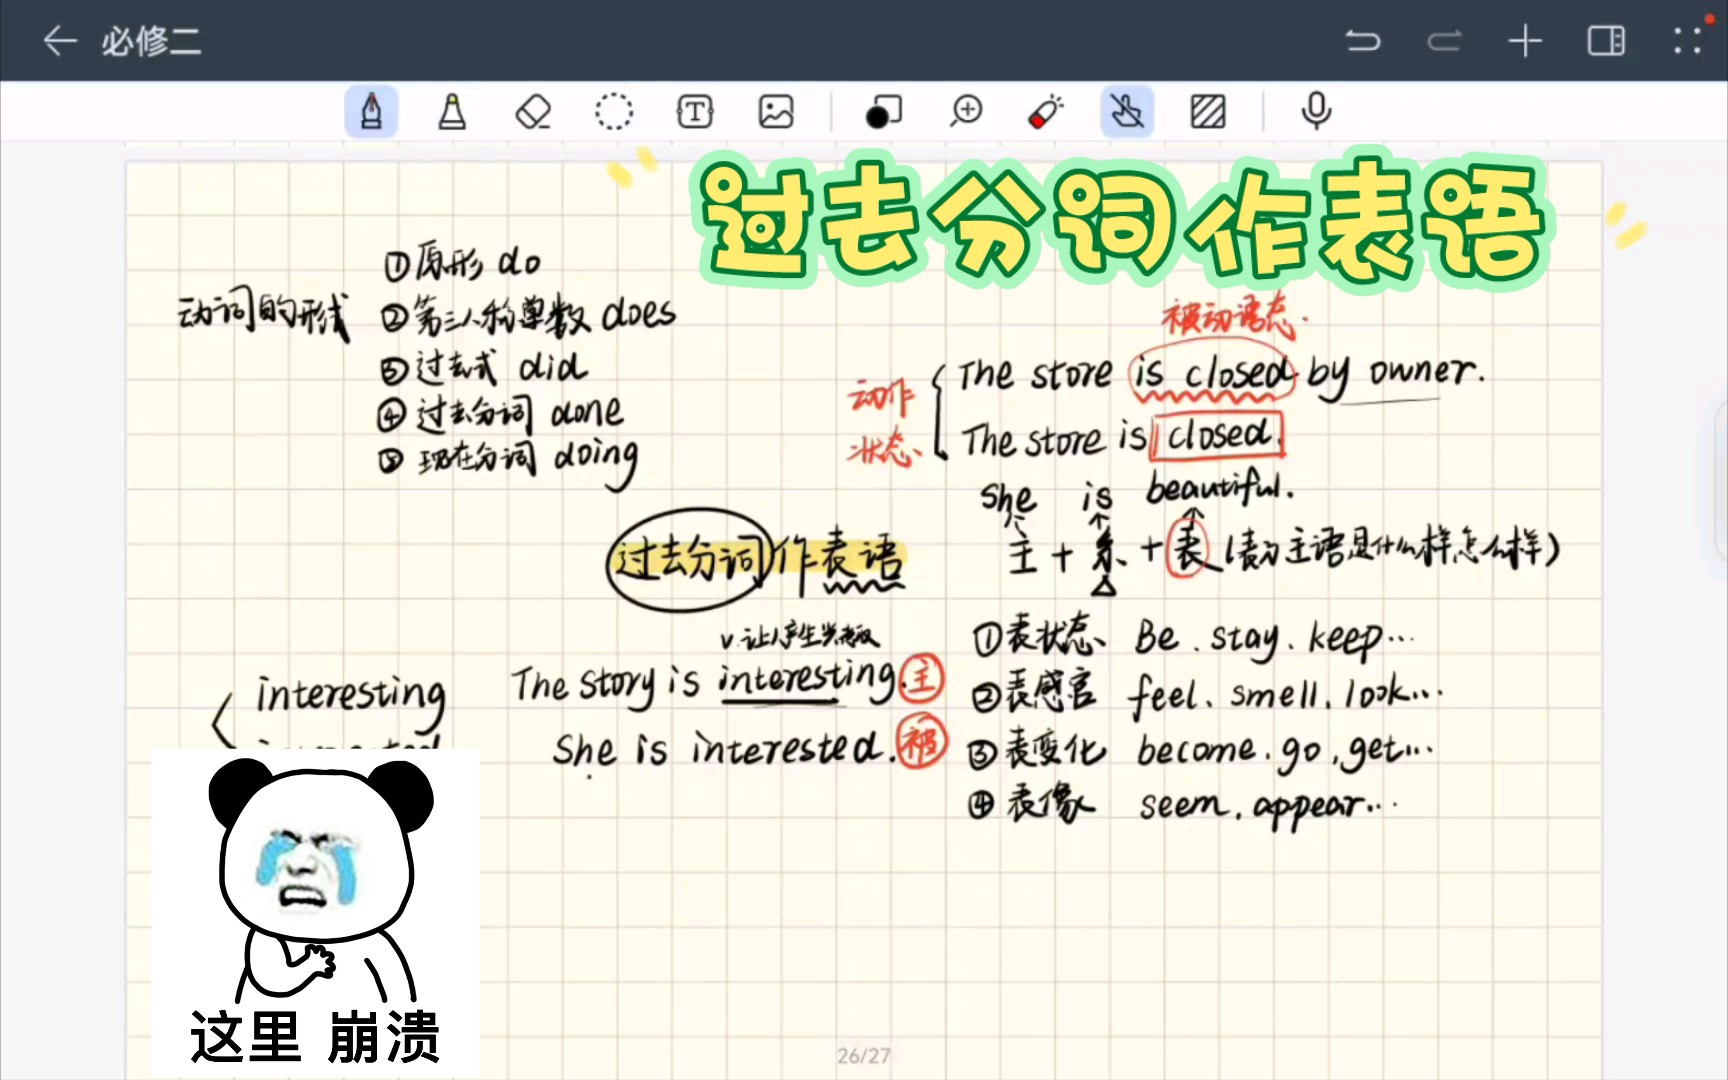 必修二
过去分词作表语
动词的形式
①原形 do
②第三人称单数 does
③过去式 did
④过去分词 done
⑤现在分词 doing
被动语态.
动作
The store is closed by owner.
状态
The store is closed.
She is beautiful.
主+系+表(表示主语是什么样怎么样)
过去分词作表语
①表状态 Be. stay. keep...
②表感官 feel. smell. look...
③表变化 become. go, get...
④表像 seem. appear...
v.让人产生兴趣
The story is interesting. 主
She is interested. 被
interesting
这里 崩溃
26/27